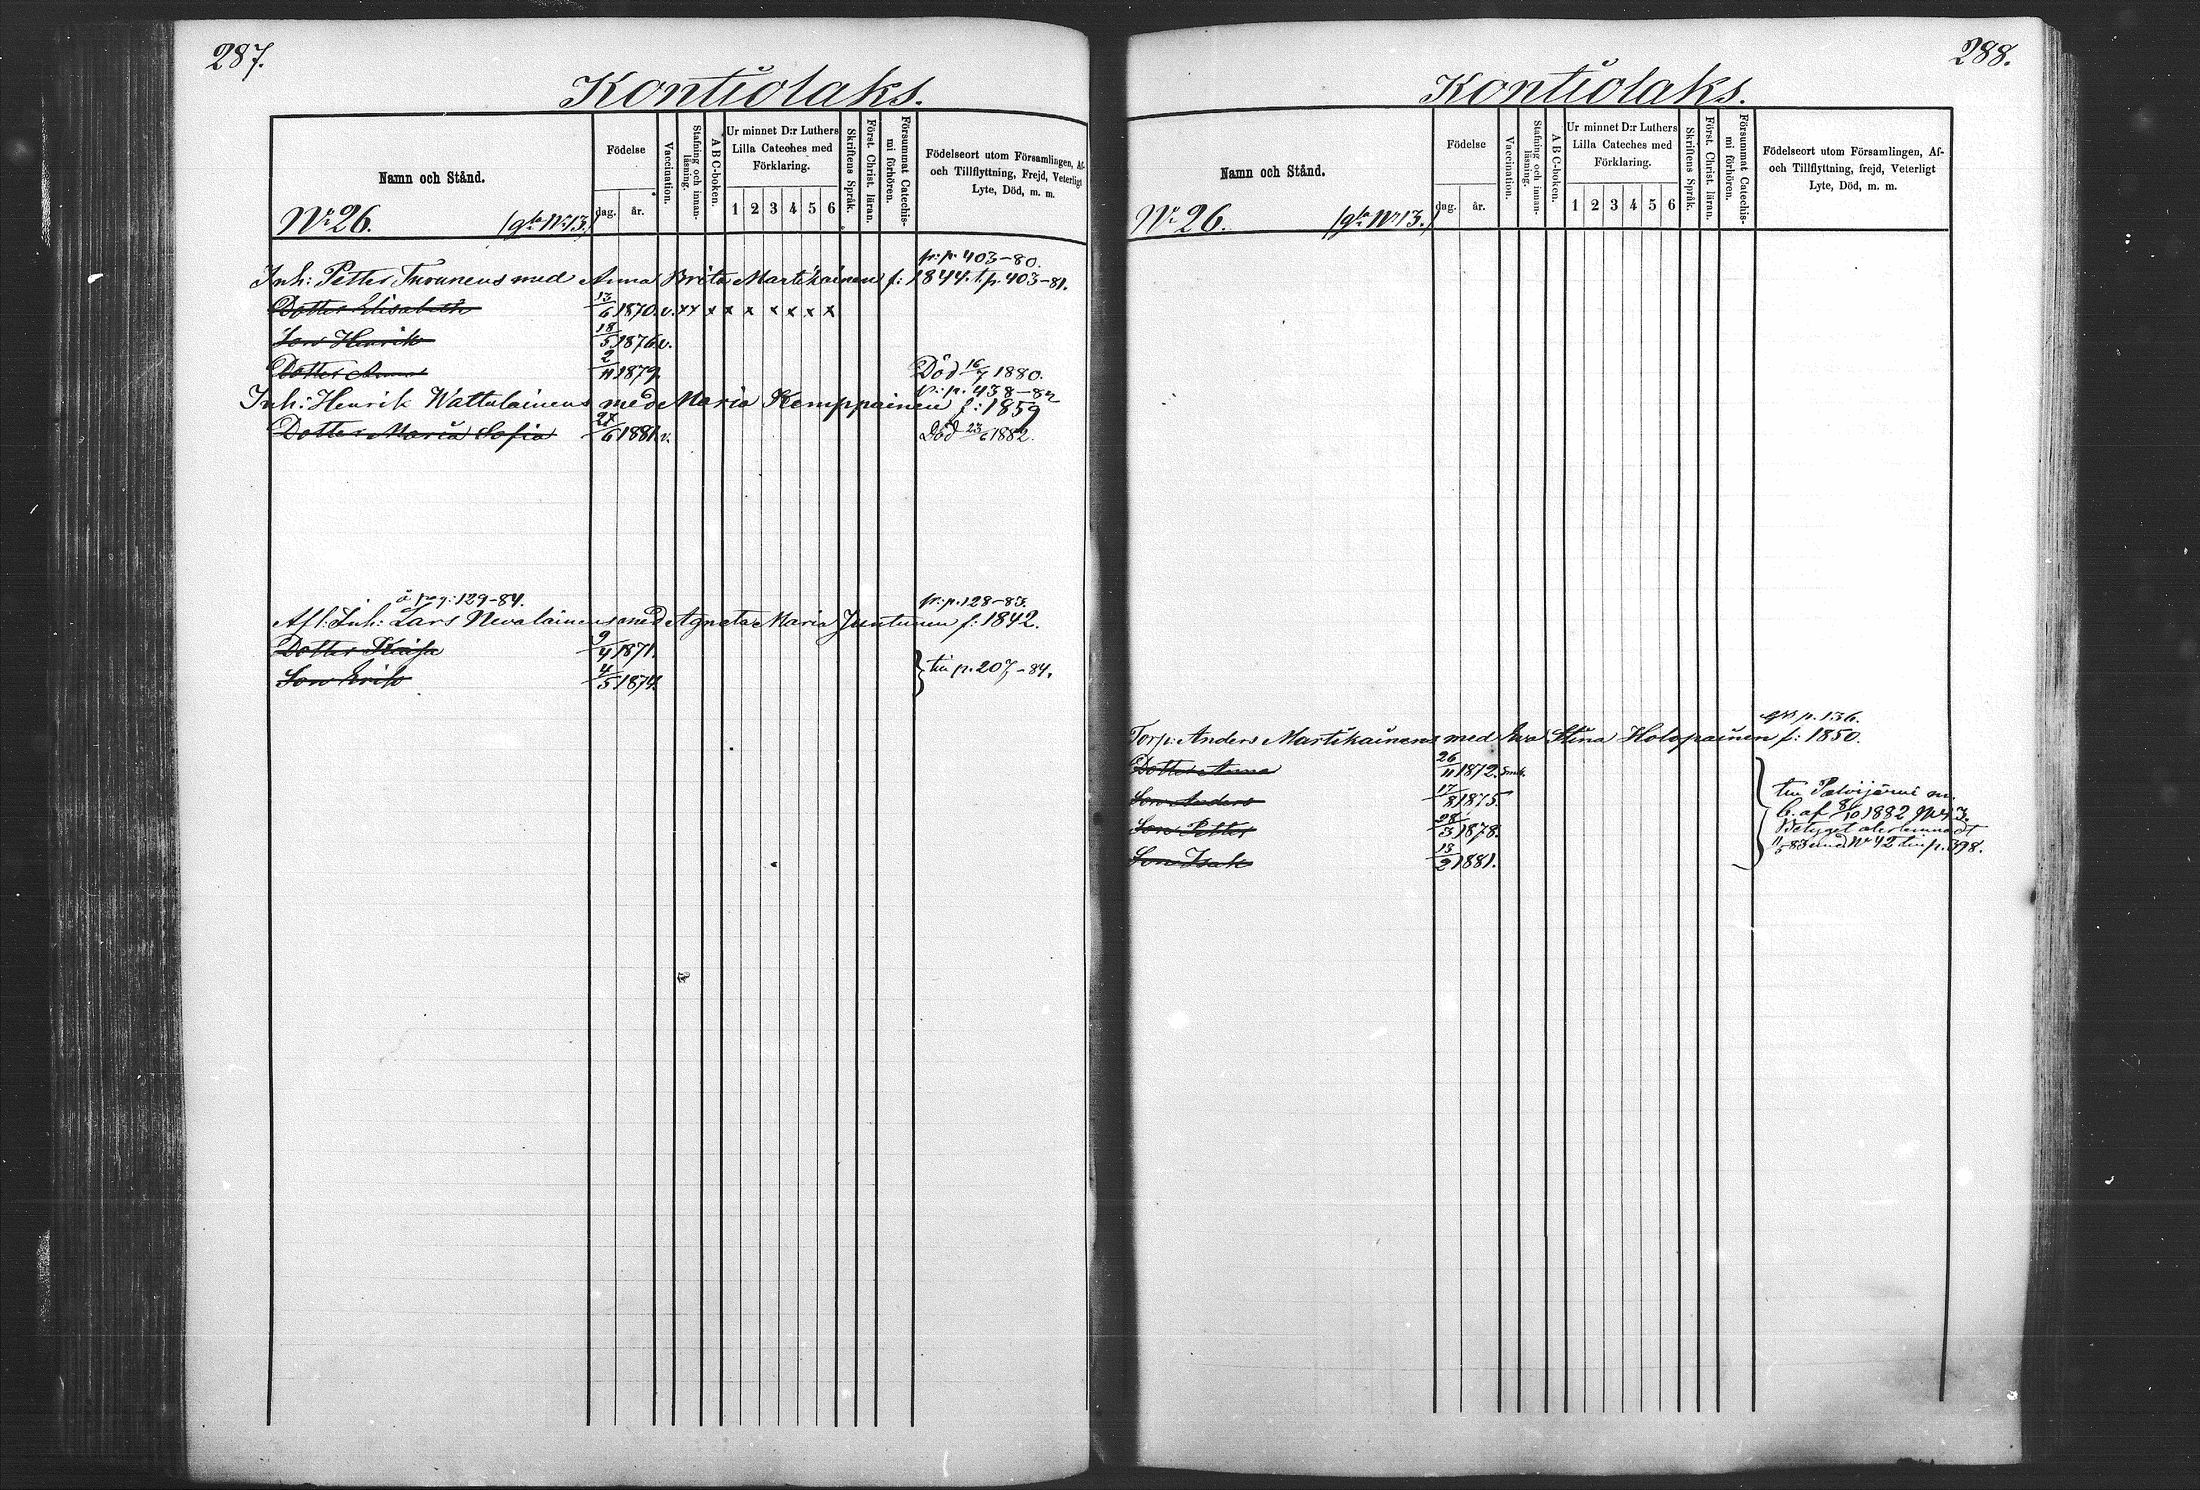 287.
Kontiolaks.
Namn och Stånd.
Födelse
dag.
år.
Vaccination.
Stafning och innan-
läsning.
A B C-boken.
Ur minnet D:r Luthers
Lilla Cateches med
Förklaring.
1 2 3 4 5 6
Skriftens Språk.
Först. Christ. läran.
Försummat Catechis-
mi förhören.
Födelseort utom Församlingen, Af-
och Tillflyttning, Frejd, Veterligt
Lyte, Död, m. m.
No 26. (gla No 13.)
fr. p. 403-80.
Inh: Petter Turunens med Anna Brita Martikainen f: 1844. t. p. 403-81.
Dotter Elisabeth 13/6 1870. v. xx x x x x x x x
Son Henrik 18/5 1876. v.
Dotter Anna 2/11 1879. Död 16/7 1880.
fr: p. 438-82
Inh: Henrik Wattulainens med Maria Kemppainen f: 1859
Dotter Maria Sofia 27/6 1881. v. Död 23/6 1882.
å pag: 129-84. fr: p. 128-83.
Afl: Inh: Lars Nevalainens med Agneta Maria Juntunen f: 1842.
Dotter Kaisa 9/4 1871.
Son Erik 4/5 1874.
till p. 207-84.
288.
Kontiolaks.
Namn och Stånd.
Födelse
dag.
år.
Vaccination.
Stafning och innan-
läsning.
A B C-boken.
Ur minnet D:r Luthers
Lilla Cateches med
Förklaring.
1 2 3 4 5 6
Skriftens Språk.
Först. Christ. läran.
Försummat Catechis-
mi förhören.
Födelseort utom Församlingen, Af-
och Tillflyttning, frejd, Veterligt
Lyte, Död, m. m.
No 26. (gla No 13.)
p. 136.
Torp: Anders Martikainens med Eva Stina Holopainen f: 1850.
Dotter Anna 26/11 1872.
Son Anders 17/8 1875.
Son Petter 28/3 1878.
Son Isak 13/2 1881.
till Palvijärvi m.
b. af 8/10 1882
Betyget återlemnadt
11/5 83 med No 42 till p. 398.